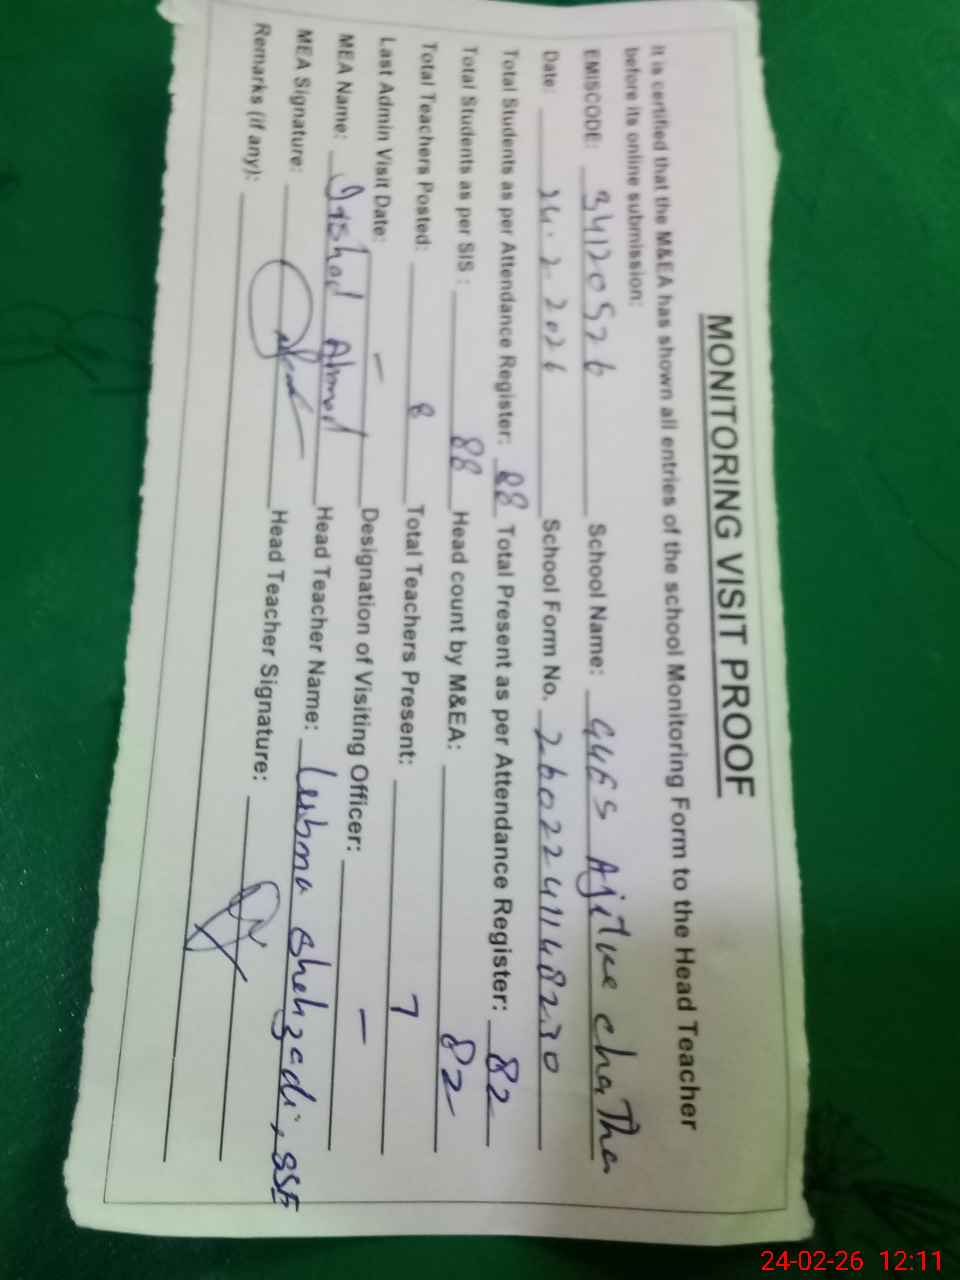 MONITORING VISIT PROOF
It is certified that the M&EA has shown all entries of the school Monitoring Form to the Head Teacher
before its online submission:
EMISCODE: 34120526 School Name: GGES Ajitke chaTha
Date: 24.2.2026 School Form No. 2602241148230
Total Students as per Attendance Register: 88 Total Present as per Attendance Register: 82
Total Students as per SIS : 88 Head count by M&EA: 82
Total Teachers Posted: 8 Total Teachers Present: 7
Last Admin Visit Date: - Designation of Visiting Officer: -
MEA Name: Irshad Ahmad Head Teacher Name: Lubna shehzadi, SSE
MEA Signature: Head Teacher Signature:
Remarks (if any):
24-02-26 12:11